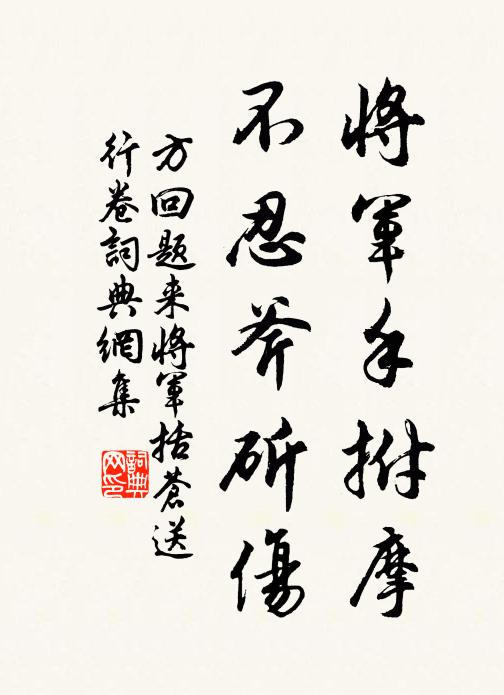 將軍手拊摩
不忍斧斫傷
方回題来將軍括蒼送
行卷詞典網集
詞典網印